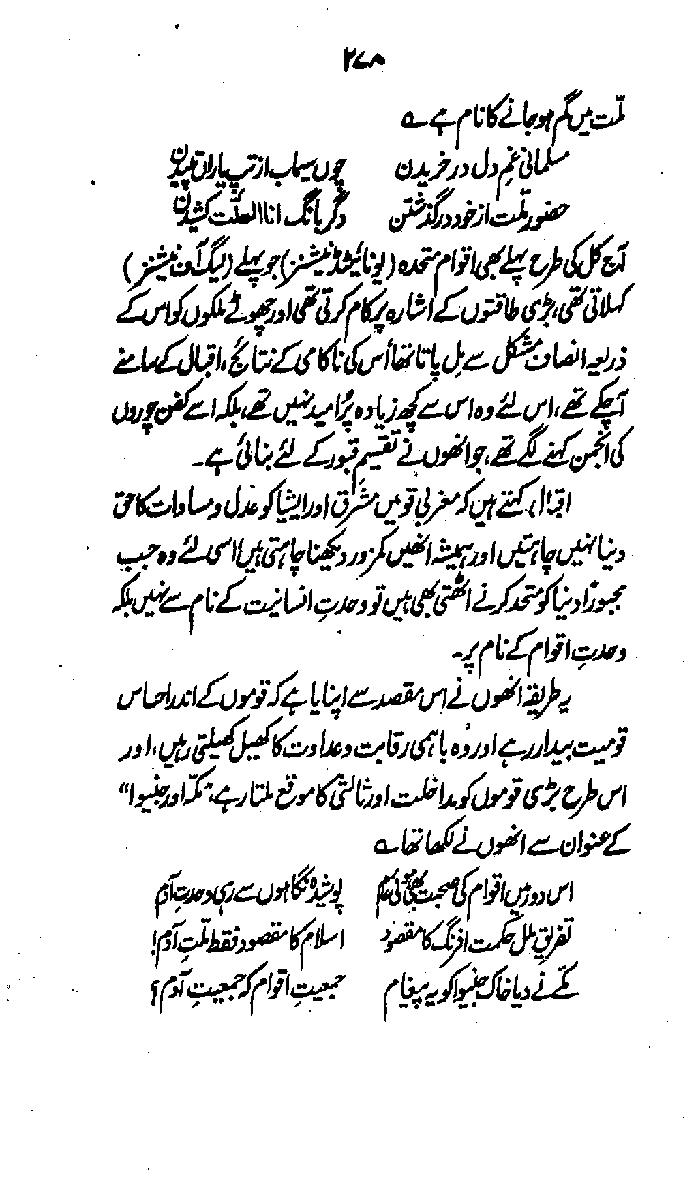 ۲۷۸
ملّت میں گم ہو جانے کا نام ہے ؎
مسلمانی غمِ دل در خریدن چوں سیماب از تپِ یاراں تپیدن
حضورِ ملّت از خود در گذشتن دگر بانگ انا الملّت کشیدن
آج کل کی طرح پہلے بھی اقوام متحدہ (یونائیٹڈ نیشنز) جو پہلے (لیگ آف نیشنز)
کہلاتی تھی، بڑی طاقتوں کے اشارہ پر کام کرتی تھی اور چھوٹے ملکوں کو اس کے
ذریعہ انصاف مشکل سے مِل پاتا تھا اُس کی ناکامی کے نتائج، اقبال کے سامنے
آچکے تھے، اس لئے وہ اس سے کچھ زیادہ پُر امید نہیں تھے، بلکہ اسے کفن چوروں
کی انجمن کہنے لگے تھے، جو انھوں نے تقسیم قبور کے لئے بنائی ہے۔
اقبال، کہتے ہیں کہ مغربی قومیں مشرق اور ایشیا کو عدل و مساوات کا حق
دینا نہیں چاہتیں اور ہمیشہ انھیں کمزور دیکھنا چاہتی ہیں اسی لئے وہ جب
مجبوراً دنیا کو متحد کرنے اٹھتی بھی ہیں تو وحدتِ انسانیت کے نام سے نہیں بلکہ
وحدتِ اقوام کے نام پر۔
یہ طریقہ انھوں نے اس مقصد سے اپنایا ہے کہ قوموں کے اندر احساس
قومیت بیدار رہے اور وہ باہمی رقابت و عداوت کا کھیل کھیلتی رہیں، اور
اس طرح بڑی قوموں کو مداخلت اور ثالثی کا موقع ملتا رہے، "مکہ اور جنیوا"
کے عنوان سے انھوں نے لکھا تھا ؎
اس دور میں اقوام کی صحبت بھی ہوئی عام پوشیدہ نگاہوں سے رہی وحدتِ آدم
تفریقِ ملل حکمت افرنگ کا مقصود اسلام کا مقصود فقط ملّتِ آدم!
مکّے نے دیا خاک جنیوا کو یہ پیغام جمعیتِ اقوام کہ جمعیتِ آدم؟